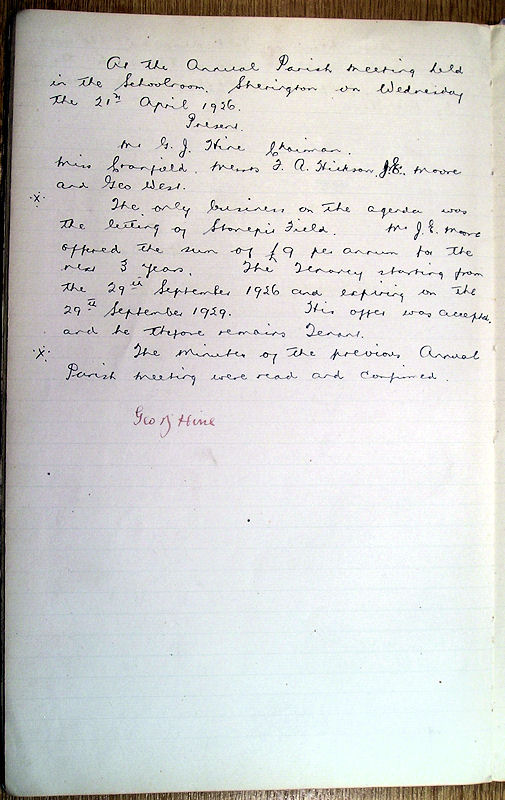 At the Annual Parish Meeting held
in the Schoolroom, Sherington on Wednesday
the 21st April 1926.
Present.
Mr G. J. Hine Chairman.
Miss Cranfield, Messrs F. A. Hickson, J.E. Moore
and Geo West.
.X. The only business on the agenda was
the letting of Stonepit Field. Mr J. E. Moore
offered the sum of £9 per annum for the
next 3 years. The Tenancy starting from
the 29th September 1926 and expiring on the
29th September 1929. This offer was accepted,
and he therefore remains Tenant.
.X. The minutes of the previous Annual
Parish Meeting were read and confirmed.
Geo J Hine